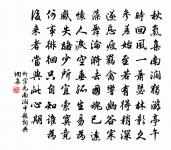 秋氣集南澗獨游亭午
時回風一蕭瑟林影久
參差始至若有得稍深
遂忘疲羈禽響幽谷寒
藻舞淪漪去國魂已遠
懷人淚空垂孤生易為
感失路少所宜索寞竟
何事徘徊只自知誰為
後來者當與此心期
柳宗元南澗中題詞典
網集